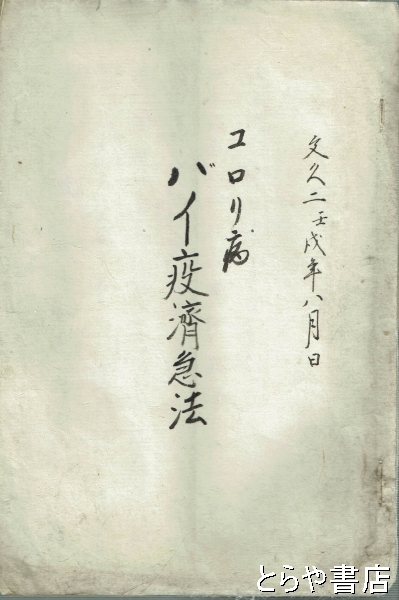 文久二壬戌年八月日
コロリ病
バイ疫濟急法
とらや書店